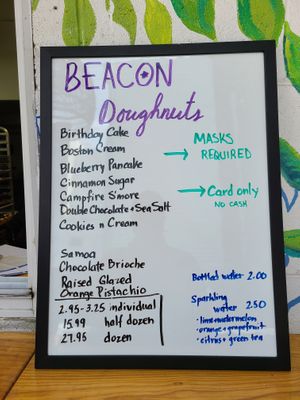 BEACON
Doughnuts
Birthday Cake
Boston Cream
Blueberry Pancake
Cinnamon Sugar
Campfire S'more
Double Chocolate + Sea Salt
Cookies n Cream
Samoa
Chocolate Brioche
Raised Glazed
Orange Pistachio
2.95-3.25 individual
15.99 half dozen
27.95 dozen
→ MASKS
REQUIRED
→ Card only
NO CASH
Bottled water 2.00
Sparkling
water 2.50
• lime + watermelon
• orange + grapefruit
• citrus + green tea